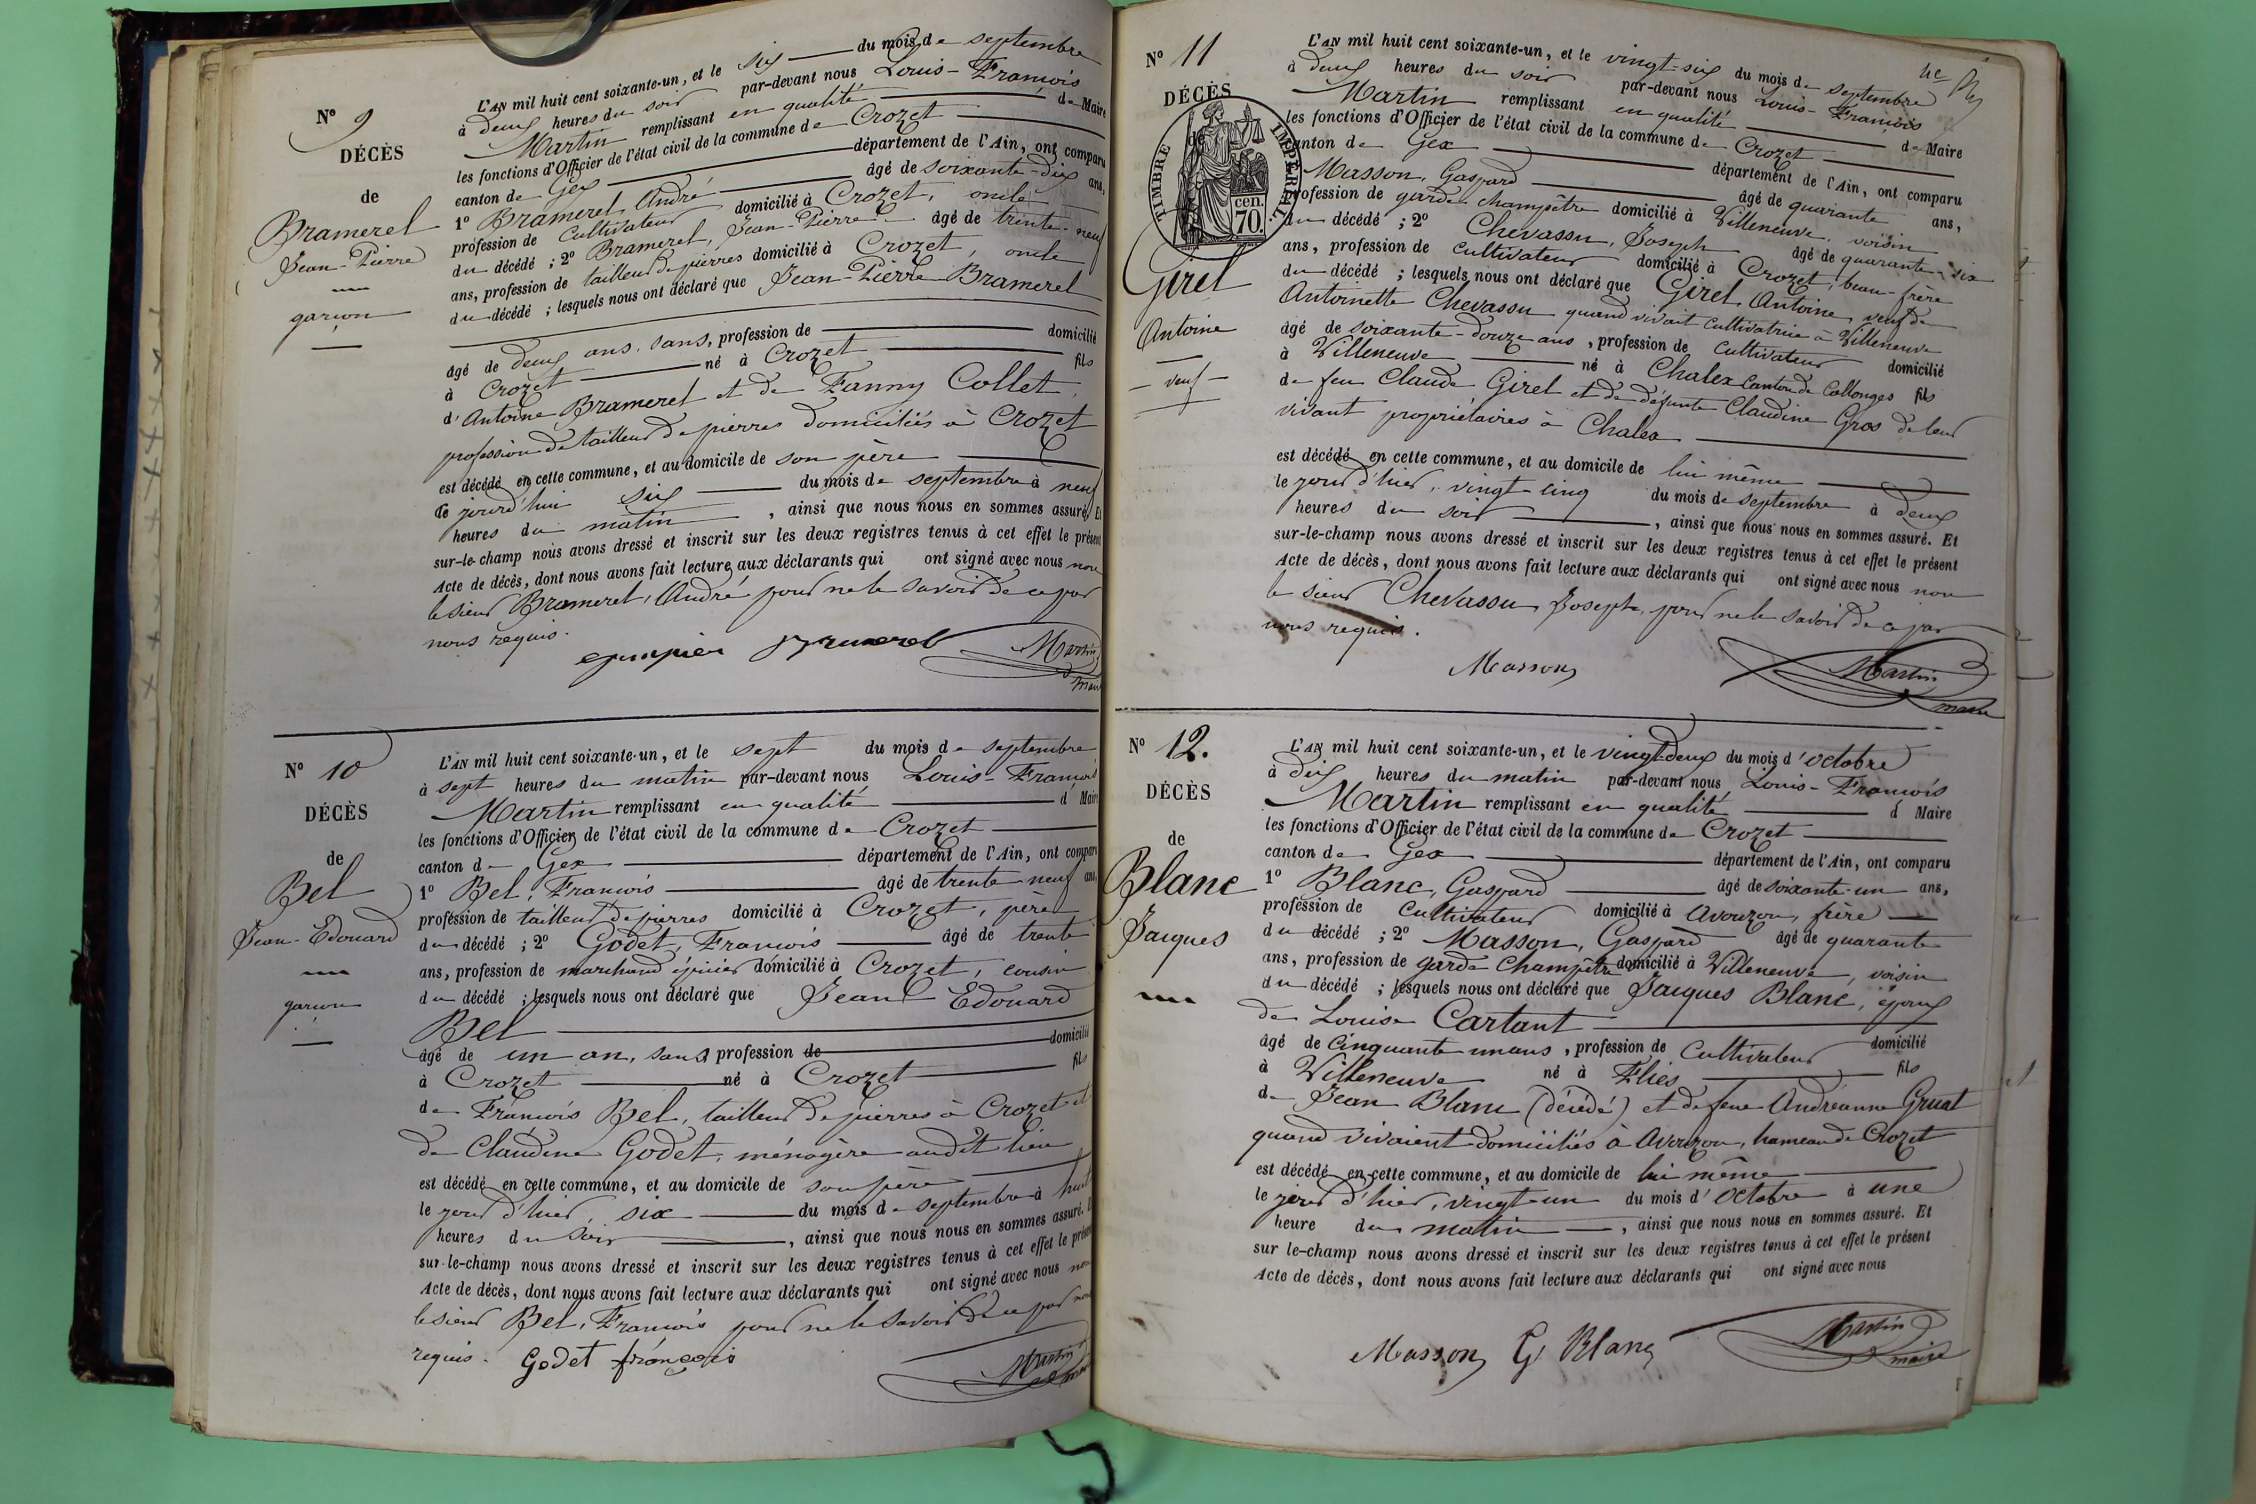 N° 9
DÉCÈS
de
Bramerel
Jean-Pierre
garçon
L'AN mil huit cent soixante-un, et le six du mois de septembre
à deux heures du soir par-devant nous Louis-François
Martin remplissant en qualité de Maire
les fonctions d'Officier de l'état civil de la commune de Crozet
canton de Gex département de l'Ain, ont comparu
1° Bramerel, André âgé de soixante-dix ans,
profession de cultivateur domicilié à Crozet, oncle
du décédé ; 2° Bramerel, Jean-Pierre âgé de trente-neuf
ans, profession de tailleur de pierres domicilié à Crozet, oncle
du décédé ; lesquels nous ont déclaré que Jean-Pierre Bramerel
âgé de deux ans, sans, profession de domicilié
à Crozet né à Crozet fils
d'Antoine Bramerel et de Fanny Collet,
profession de tailleur de pierres domiciliés à Crozet
est décédé en cette commune, et au domicile de son père
ce jourd'hui six du mois de septembre à neuf
heures du matin, ainsi que nous nous en sommes assuré. Et
sur-le-champ nous avons dressé et inscrit sur les deux registres tenus à cet effet le présent
Acte de décès, dont nous avons fait lecture aux déclarants qui ont signé avec nous non
le sieur Bramerel, André pour ne le savoir de ce par
nous requis.
jenpier Bramerel Martin
maire
N° 10
DÉCÈS
de
Bel
Jean-Edouard
garçon
L'AN mil huit cent soixante-un, et le sept du mois de septembre
à sept heures du matin par-devant nous Louis-François
Martin remplissant en qualité d Maire
les fonctions d'Officier de l'état civil de la commune de Crozet
canton de Gex département de l'Ain, ont comparu
1° Bel, François âgé de trente neuf ans,
profession de tailleur de pierres domicilié à Crozet, père
du décédé ; 2° Godet, François âgé de trente
ans, profession de marchand épicier domicilié à Crozet, cousin
du décédé ; lesquels nous ont déclaré que Jean Edouard
Bel
âgé de un an, sans, profession de domicilié
à Crozet né à Crozet fils
de François Bel, tailleur de pierres à Crozet et
de Claudine Godet, ménagère audit lieu
est décédé en cette commune, et au domicile de son père
le jour d'hier, six du mois de septembre à huit
heures du soir, ainsi que nous nous en sommes assuré. Et
sur-le-champ nous avons dressé et inscrit sur les deux registres tenus à cet effet le présent
Acte de décès, dont nous avons fait lecture aux déclarants qui ont signé avec nous non
le sieur Bel, François pour ne le savoir de ce par nous
requis. Godet françois Martin
maire
4e
N° 11
DÉCÈS
de
TIMBRE IMPÉRIAL
70 cen.
Girel
Antoine
veuf
L'AN mil huit cent soixante-un, et le vingt-six du mois de septembre
à deux heures du soir par-devant nous Louis-François
Martin remplissant en qualité de Maire
les fonctions d'Officier de l'état civil de la commune de Crozet
canton de Gex département de l'Ain, ont comparu
Masson, Gaspard âgé de quarante ans,
profession de garde champêtre domicilié à Villeneuve, voisin
du décédé ; 2° Chevassu, Joseph âgé de quarante-six
ans, profession de cultivateur domicilié à Crozet, beau-frère
du décédé ; lesquels nous ont déclaré que Girel, Antoine, veuf de
Antoinette Chevassu quand vivait cultivatrice à Villeneuve
âgé de soixante-douze ans, profession de cultivateur domicilié
à Villeneuve né à Chalex Canton de Collonges fils
de feu Claude Girel et de défunte Claudine Gros de leur
vivant propriétaires à Chalex
est décédé en cette commune, et au domicile de lui même
le jour d'hier, vingt cinq du mois de septembre à deux
heures du soir, ainsi que nous nous en sommes assuré. Et
sur-le-champ nous avons dressé et inscrit sur les deux registres tenus à cet effet le présent
Acte de décès, dont nous avons fait lecture aux déclarants qui ont signé avec nous non
le sieur Chevassu, Joseph, pour ne le savoir de ce par
nous requis.
Masson Martin
maire
N° 12.
DÉCÈS
de
Blanc
Jacques
L'AN mil huit cent soixante-un, et le vingt-deux du mois d'octobre
à dix heures du matin par-devant nous Louis-François
Martin remplissant en qualité d Maire
les fonctions d'Officier de l'état civil de la commune de Crozet
canton de Gex département de l'Ain, ont comparu
1° Blanc, Gaspard âgé de soixante-un ans,
profession de cultivateur domicilié à Avouzon, frère
du décédé ; 2° Masson, Gaspard âgé de quarante
ans, profession de garde champêtre domicilié à Villeneuve, voisin
du décédé ; lesquels nous ont déclaré que Jacques Blanc, époux
de Louise Cartant
âgé de cinquante un ans, profession de cultivateur domicilié
à Villeneuve né à Flies fils
de Jean Blanc (décédé) et de feue Andréanne Gruat
quand vivaient domiciliés à Avouzon, hameau de Crozet
est décédé en cette commune, et au domicile de lui même
le jour d'hier, vingt-un du mois d'octobre à une
heure du matin, ainsi que nous nous en sommes assuré. Et
sur le-champ nous avons dressé et inscrit sur les deux registres tenus à cet effet le présent
Acte de décès, dont nous avons fait lecture aux déclarants qui ont signé avec nous
Masson G Blanc Martin
maire